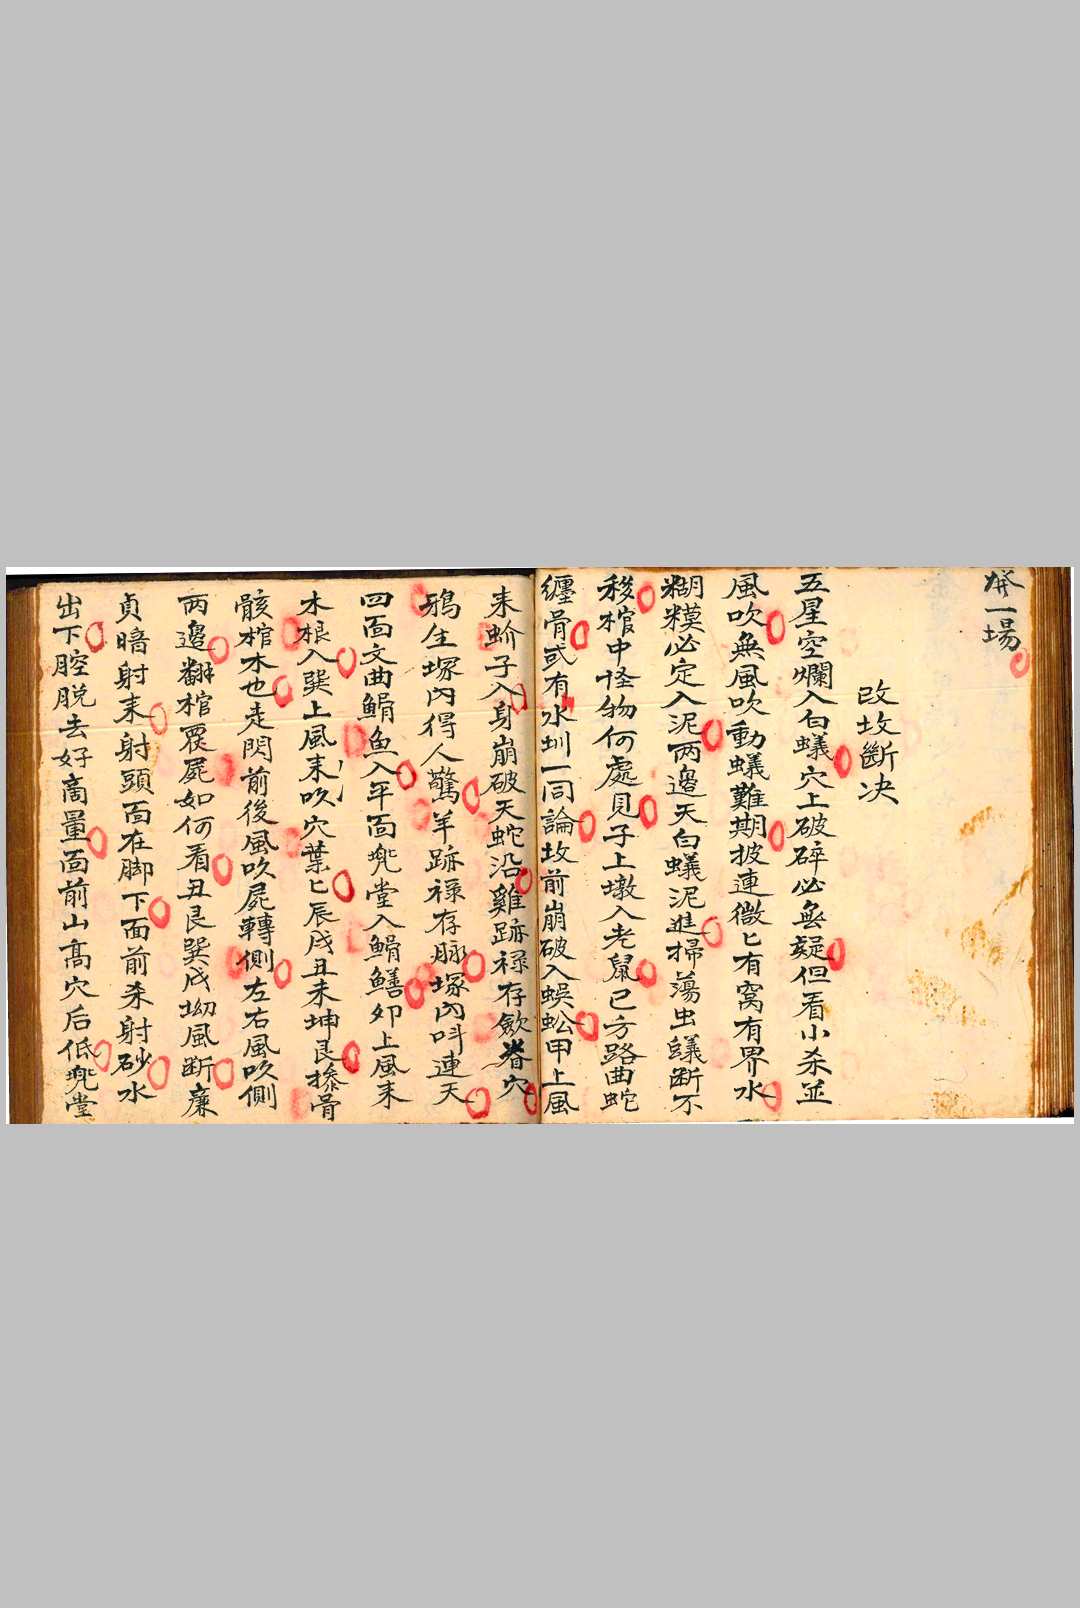 發一場
改坟斷决
五星空爛入白蟻穴上破碎必無疑但看小杀並
風吹無風吹動蟻難期披連微匕有窝有界水
糊糢必定入泥两邉天白蟻泥進掃蕩虫蟻断不
移棺中怪物何處見子上墩入老鼠巳方路曲蛇
纒骨或有水圳一同論坟前崩破入蜈蚣甲上風
来蚧子入身崩破天蛇沿雞跡禄存斂脊穴
鴉生塚内得人驚羊跡禄存脉塚内呌連天
四面文曲鰯魚入平面兠堂入鰯鱔夘上風来
木根入巽上風来吹穴葉匕辰戌丑未坤艮掺骨
骸棺木也走閃前後風吹屍轉側左右風吹側
两邉翻棺覆屍如何看丑艮巽戌坳風断廉
貞暗射来射頭面在脚下面前杀射砂水
出下腔脱去好商量面前山髙穴后低兠堂